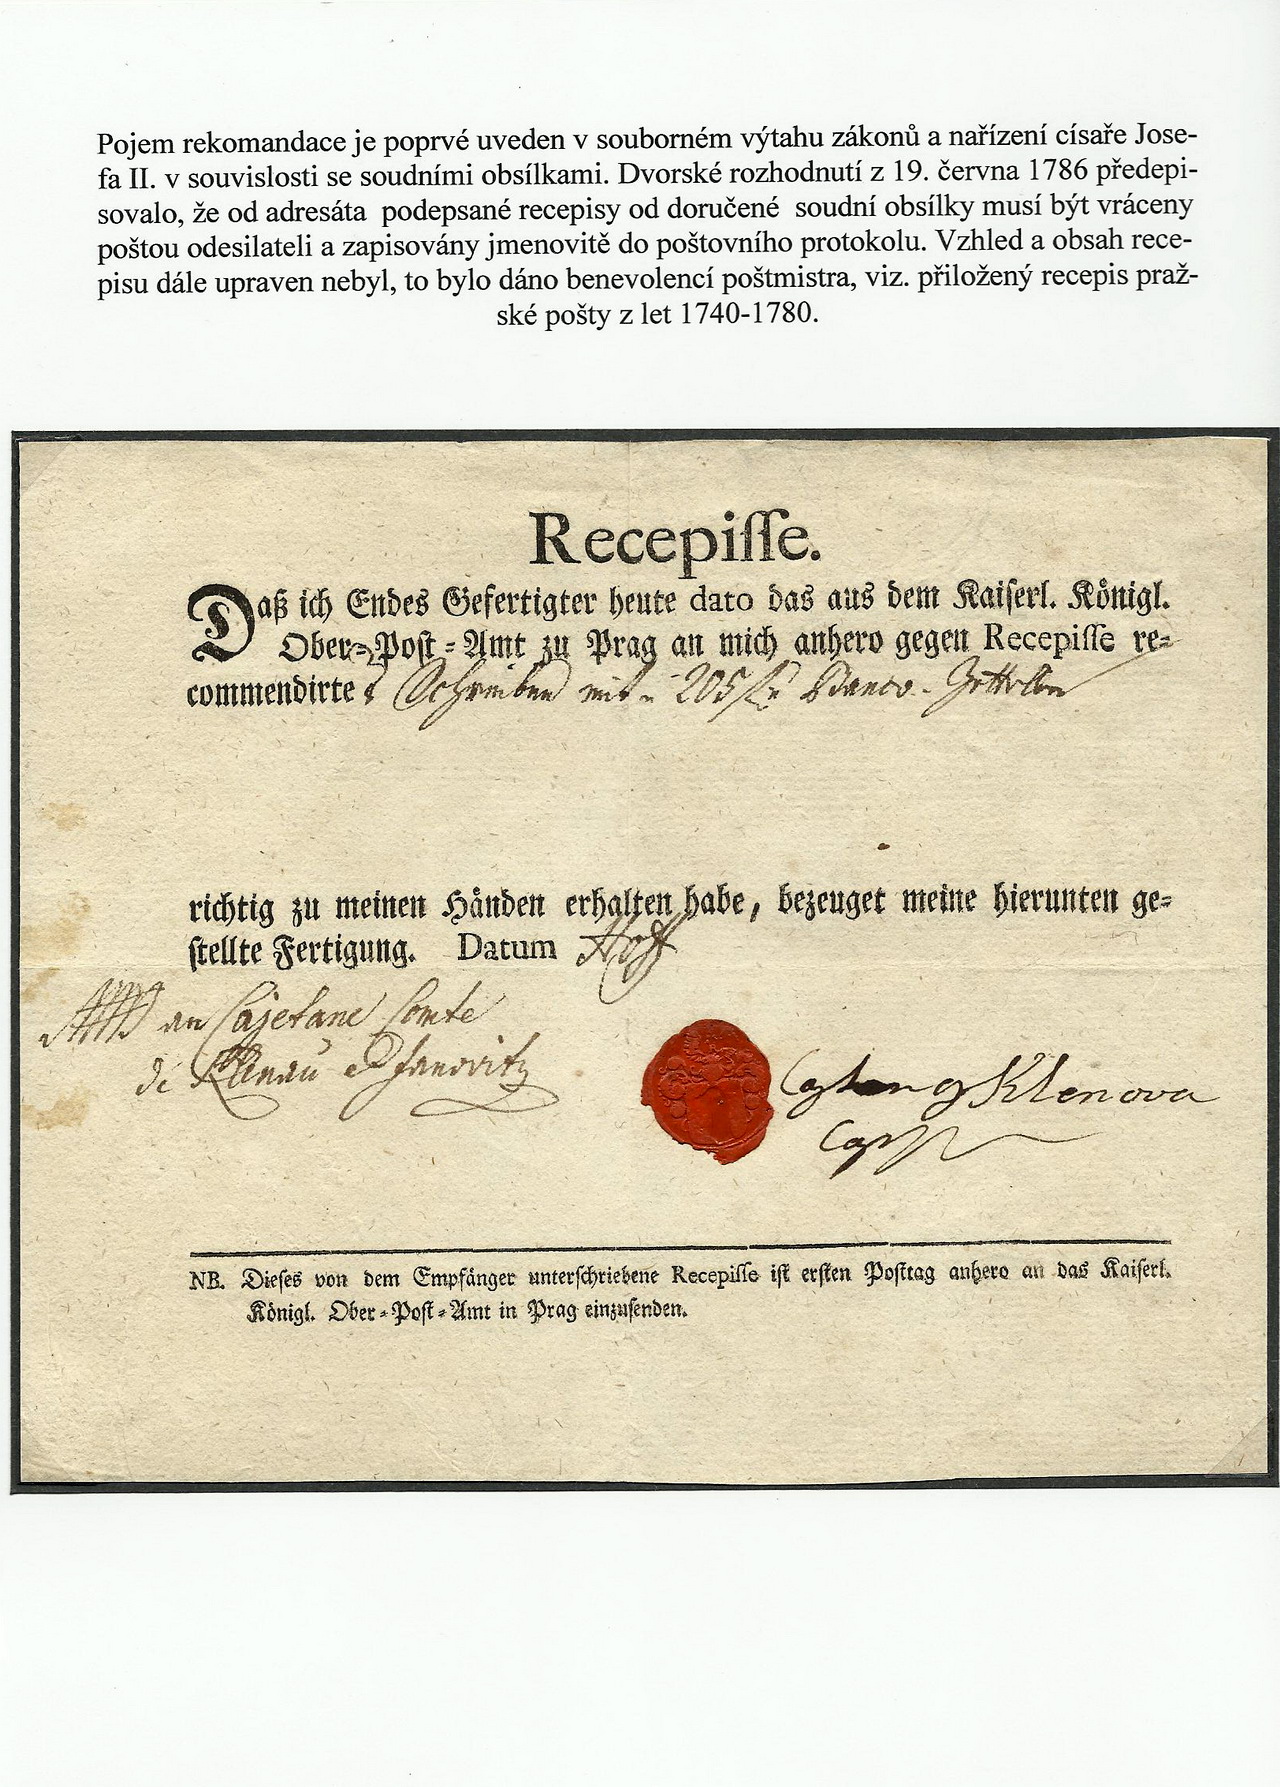 Pojem rekomandace je poprvé uveden v souborném výtahu zákonů a nařízení císaře Jose-
fa II. v souvislosti se soudními obsílkami. Dvorské rozhodnutí z 19. června 1786 předepi-
sovalo, že od adresáta podepsané recepisy od doručené soudní obsílky musí být vráceny
poštou odesilateli a zapisovány jmenovitě do poštovního protokolu. Vzhled a obsah rece-
pisu dále upraven nebyl, to bylo dáno benevolencí poštmistra, viz. přiložený recepis praž-
ské pošty z let 1740-1780.
Recepiſſe.
Daß ich Endes Gefertigter heute dato das aus dem Kaiſerl. Königl.
Ober-Poſt-Amt zu Prag an mich anhero gegen Recepiſſe re-
commendirte Schreiben mit 205 Banco
richtig zu meinen Händen erhalten habe, bezeuget meine hierunten ge-
ſtellte Fertigung. Datum
an Cajetane Comte
de Klenau e Janovitz
Klenova
NB. Dieſes von dem Empfänger unterſchriebene Recepiſſe iſt erſten Poſttag anhero an das Kaiſerl.
Königl. Ober-Poſt-Amt in Prag einzuſenden.